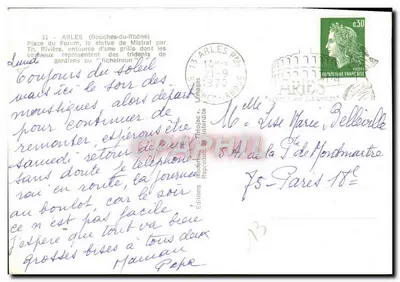 11 - ARLES (Bouches-du-Rhône)
Place du Forum, la statue de Mistral par
Th. Rivière, entourée d'une grille dont les
représentent des tridents de
gardians ou "ficheiroun"
Lundi
Toujours du soleil
mais ici le soir des
moustiques alors départ
pour continuer de
remonter, espérons être
samedi retour depuis
sans doute je téléphone
rai en route, la journée
au boulot, car le soir
ce n'est pas facile
J'espère que tout va bien
grosses bises à tous deux
Maman
Papa
13 ARLES
ARLES
0,30
REPUBLIQUE FRANÇAISE
Melle Lise Marie Belleville
5A. de la Pl. de Montmartre
75 - Paris 18e
13